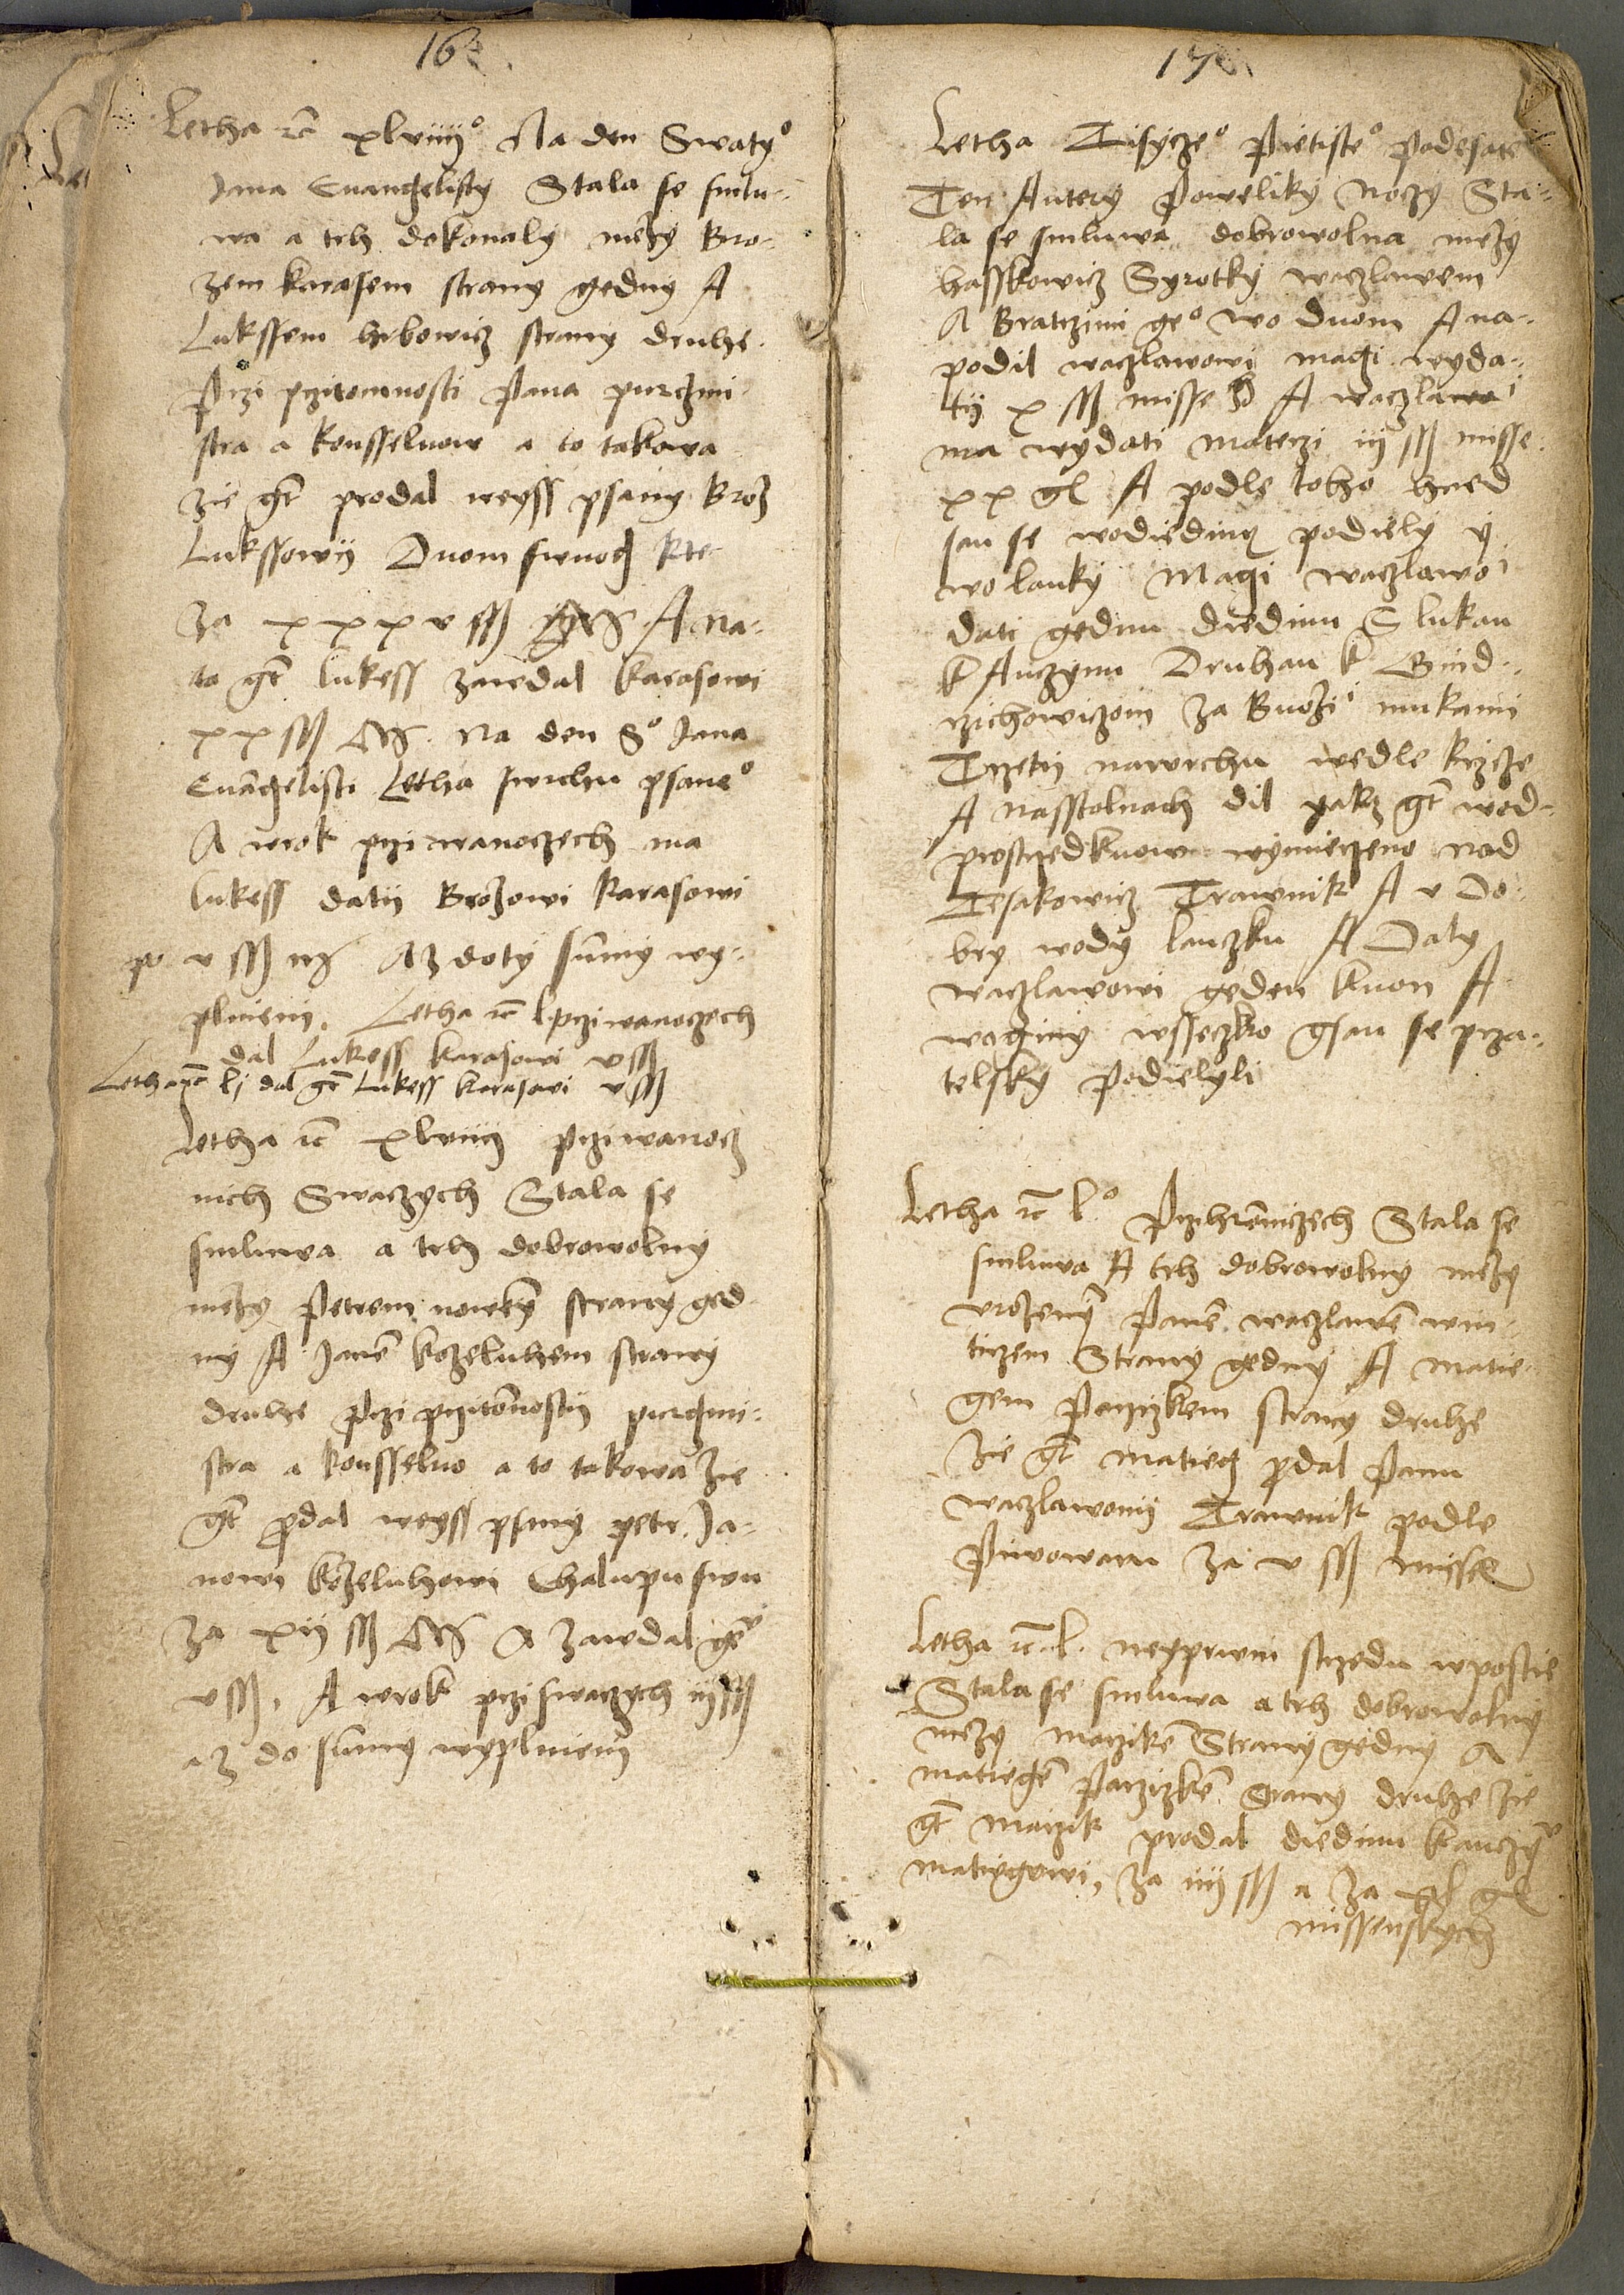 16
Letha ꝛc xlviiij° Na den Swaty°
Jana Euangelisty Stala se smlu-
wa a trh dokonaly mezy Bro-
zem karasem strany gedny A
Lukssem hrbowicz strany druhe
Przi przitomnosti Pana purgmi-
stra a konsseluow a to takowa
zie gt prodal weyss psany Broz
Lukssowij Duom swuog
Za xxxv ssß A na-
to gt lukess zawdal karasowi
xx ssß Na den S° Jana
Euangelisti Letha swrchu psane°
A wrok przi wanoczech ma
lukess datij Brozowi karasowi
po v ssß Az doty sumy wy-
plnieni. Letha ꝛc l przi wanoczech
dal Lukess karasowi v ssß
Letha ꝛc lj dal gt Lukess karasowi v ssß
Letha ꝛc xlviiij przi wanocz
nich Swaczych Stala se
smluwa a trh dobrowolny
mezy Petrem nowkem strany ged
ny A Janem kozeluhem strany
druhe przi przitomnostij purgmi-
stra a konsseluo a to takowa zie
gt prodal weyss psany petr Ja-
nowi kozeluhowi Chalupu swu
Za xij ssß A Zawdal ge°
v ssß, A wrok przi swaczych iij ssß
az do sumy wyplnieni
17
Letha Tisycze° Pietiste° Padesate°
Ten Autery Poweliky Noczy Sta-
la se smluwa dobrowolna mezy
hasskowicz Syrotky waczlawem
A Bratrzimi ge° wo duom A na-
podil waczlawowi magi wyda-
tij x ssß misse A waczlawo
ma wydati materzi iij ssß misse
xx gl A podle toho hned
sau se wodiediny podiely y
wo lauky Magi waczlawo
dati gednu diedinu S lukau
k Auczynu Druhau k Gind-
rzichowiczom Za Buozi mukami
Trzetij nawrchu wedle krzize
A nasstolnach dil yakz gt wod-
prostrzedkuow wymierzeno nad
Tesakowicz Trawnik A v Do-
bry wody lauczku A Daly
waczlawowi geden kuon A
waginy wsseczko gsau se prza-
telsky Podielyli
Letha ꝛc l° Przihromniczech Stala se
smluwa A trh dobrowolny mezy
vrozenym Panem waczlawem wm-
tirzem Strany gedny A Matie-
gem Parzizkem strany druhe
Zie gt matieg prodal Panu
waczlawowij Trawnik podle
Piwowaru Za v ssß missen
Letha ꝛc l. neyprwni strzedu wpostie
Stala se smluwa a trh dobrowolny
mezy marzikem Strany gedny A
matiegem Parzizkem Strany druhe Zie
gt marzik prodal diedinu kauczynu
matiegowi, Za iiij ssß a za xl gl
missenskych